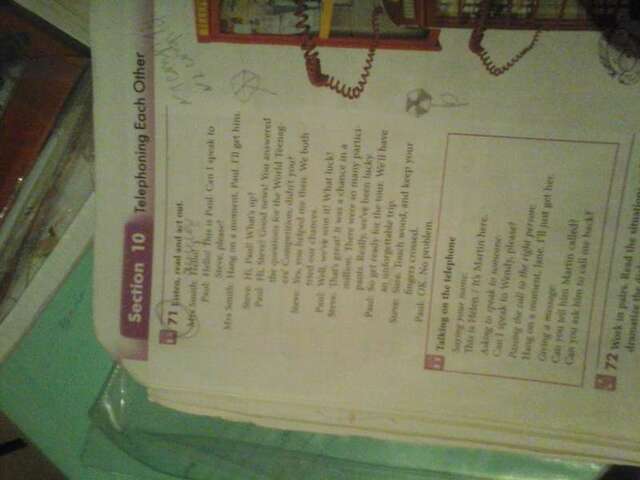 Section 10 Telephoning Each Other
71 Listen, read and act out.
Mrs Smith: Hello?
Paul: Hello! This is Paul. Can I speak to
Steve, please?
Mrs Smith: Hang on a moment, Paul. I'll get him.
Steve: Hi, Paul! What's up?
Paul: Hi, Steve! Good news! You answered
the questions for the World Teenag-
ers' Competition, didn't you?
Steve: Yes, you helped me then. We both
tried our chances.
Paul: Well, we've won it! What luck!
Steve: That's great! It was a chance in a
million. There were so many partici-
pants. Really, we've been lucky.
Paul: So get ready for the tour. We'll have
an unforgettable trip.
Steve: Sure. Touch wood, and keep your
fingers crossed.
Paul: OK. No problem.
Talking on the telephone
Saying your name:
This is Helen. / It's Martin here.
Asking to speak to someone:
Can I speak to Wendy, please?
Passing the call to the right person:
Hang on a moment, Jane. I'll just get her.
Giving a message:
Can you tell him Martin called?
Can you ask him to call me back?
72 Work in pairs. Read the situation